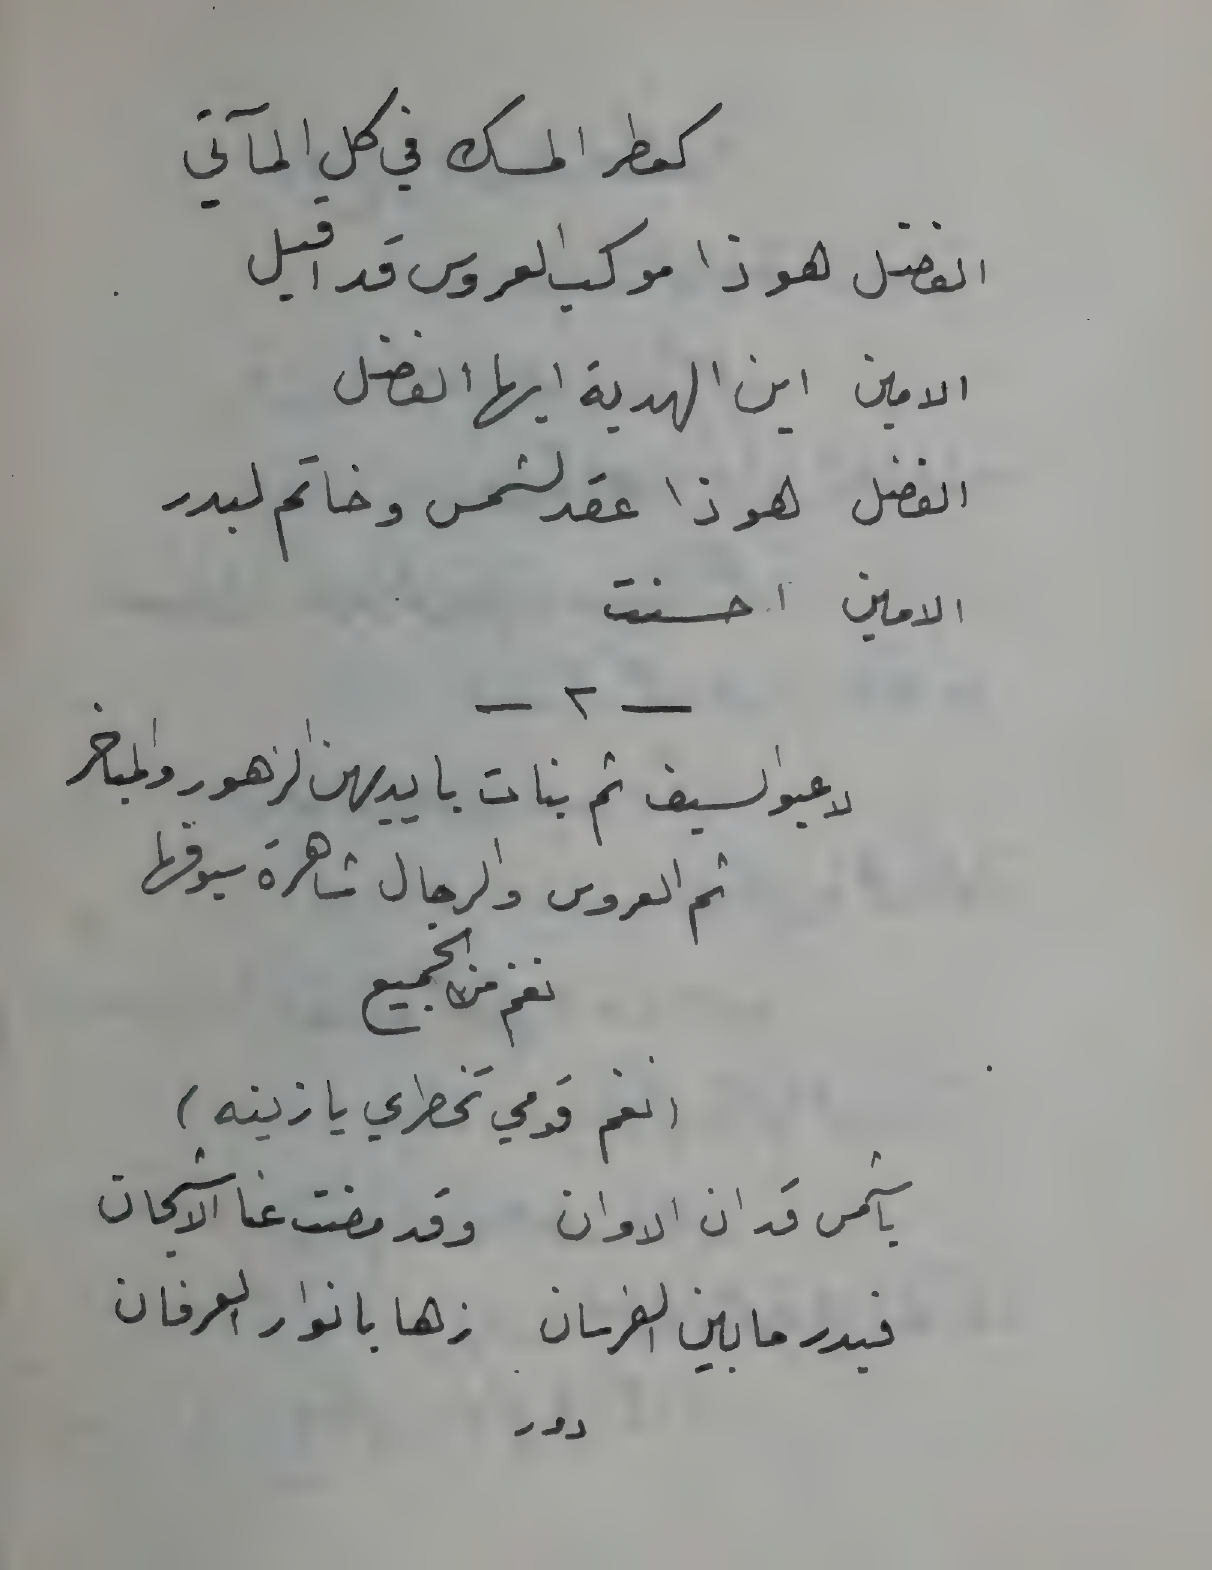 كعطر المسك في كل المآتي
الفضل هوذا موكب العروس قد اقبل
الامين اين الهدية ايها الفضل
الفضل هوذا عقد لشمس وخاتم لبدر
الامين احسنت
— ٢ —
لاعبوالسيف ثم بنات بايديهن الزهور والمباخر
ثم العروس والرجال شاهرة سيوفها
نغم من الجميع
(نغم قومي تخطري يا زينه)
ياشمس قد ان الاوان وقد مضت عنا الاشجان
فبدر ما بين الفرسان زها بانوار العرفان
دور